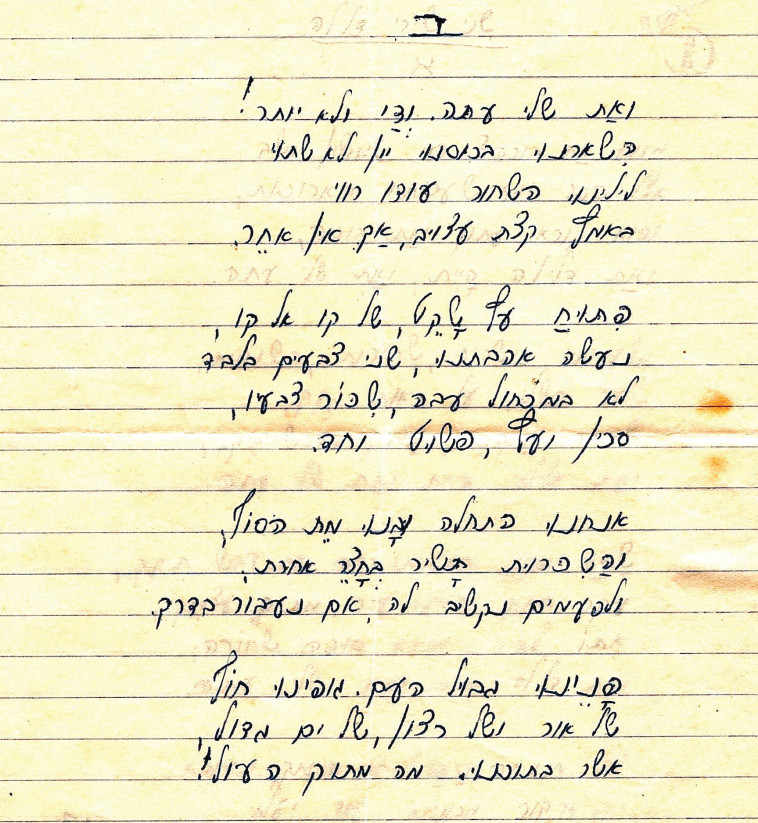 ב
ואַת שלי עתה. וְדַי ולא יותר!
הִשארנו בכוסנו יין לא שתוי
לילינו השחור עודו רווי
באמץ קצת עצוב, אַך אין אחֵר.
פִּתוחַ עץ שָקֵט, של קו אל קו,
נעשה אהבתנו, שני צבעים בלבד
לא במכחול עבה, שִכּוֹר צבעיו,
סכין ועץ, פשוט וחד.
אנחנו התחלה בָּנו מֵת הסוף,
והַשִכרות תָשיר בְּחָצֵר אחרת,
ולפעמים נקשיב לה, אם נעבור בדרך.
הִנֵינוּ גבול העם. גופינו חוף
של אור ושל רצון, של ים גדול,
אשר בתוכנו. מה מתוק העול!